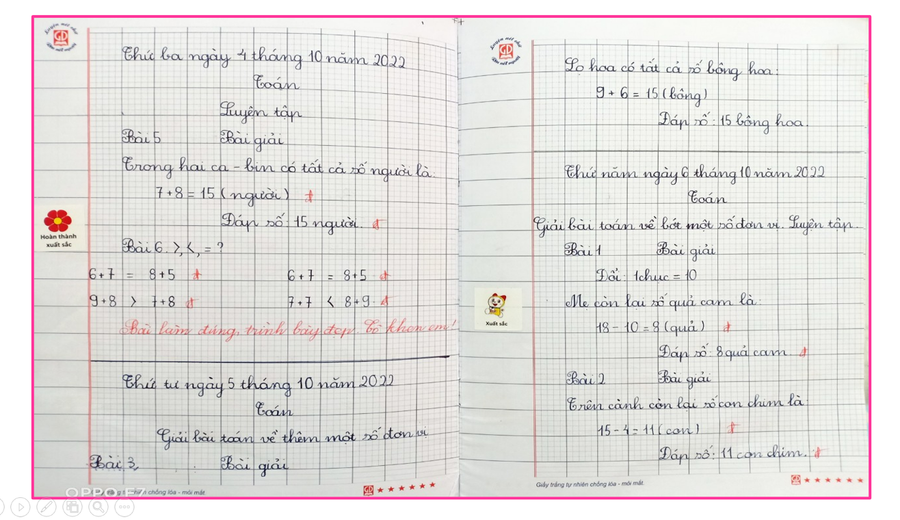 Thứ ba ngày 4 tháng 10 năm 2022
Toán
Luyện tập
Bài 5 Bài giải
Trong hai ca-bin có tất cả số người là:
7 + 8 = 15 (người)
Đáp số: 15 người.
Bài 6. >, <, = ?
6 + 7 = 8 + 5 6 + 7 = 8 + 5
9 + 8 > 7 + 8 7 + 7 < 8 + 9
Bài làm đúng, trình bày đẹp. Cô khen em!
Hoàn thành
xuất sắc
Thứ tư ngày 5 tháng 10 năm 2022
Toán
Giải bài toán về thêm một số đơn vị
Bài 3. Bài giải
Lọ hoa có tất cả số bông hoa:
9 + 6 = 15 (bông)
Đáp số: 15 bông hoa.
Thứ năm ngày 6 tháng 10 năm 2022
Toán
Giải bài toán về bớt một số đơn vị. Luyện tập.
Bài 1 Bài giải
Đổi: 1 chục = 10
Mẹ còn lại số quả cam là
18 - 10 = 8 (quả)
Đáp số: 8 quả cam
Xuất sắc
Bài 2 Bài giải
Trên cành còn lại số con chim là
15 - 4 = 11 (con)
Đáp số: 11 con chim.
Giấy trắng tự nhiên chống lóa - mỏi mắt